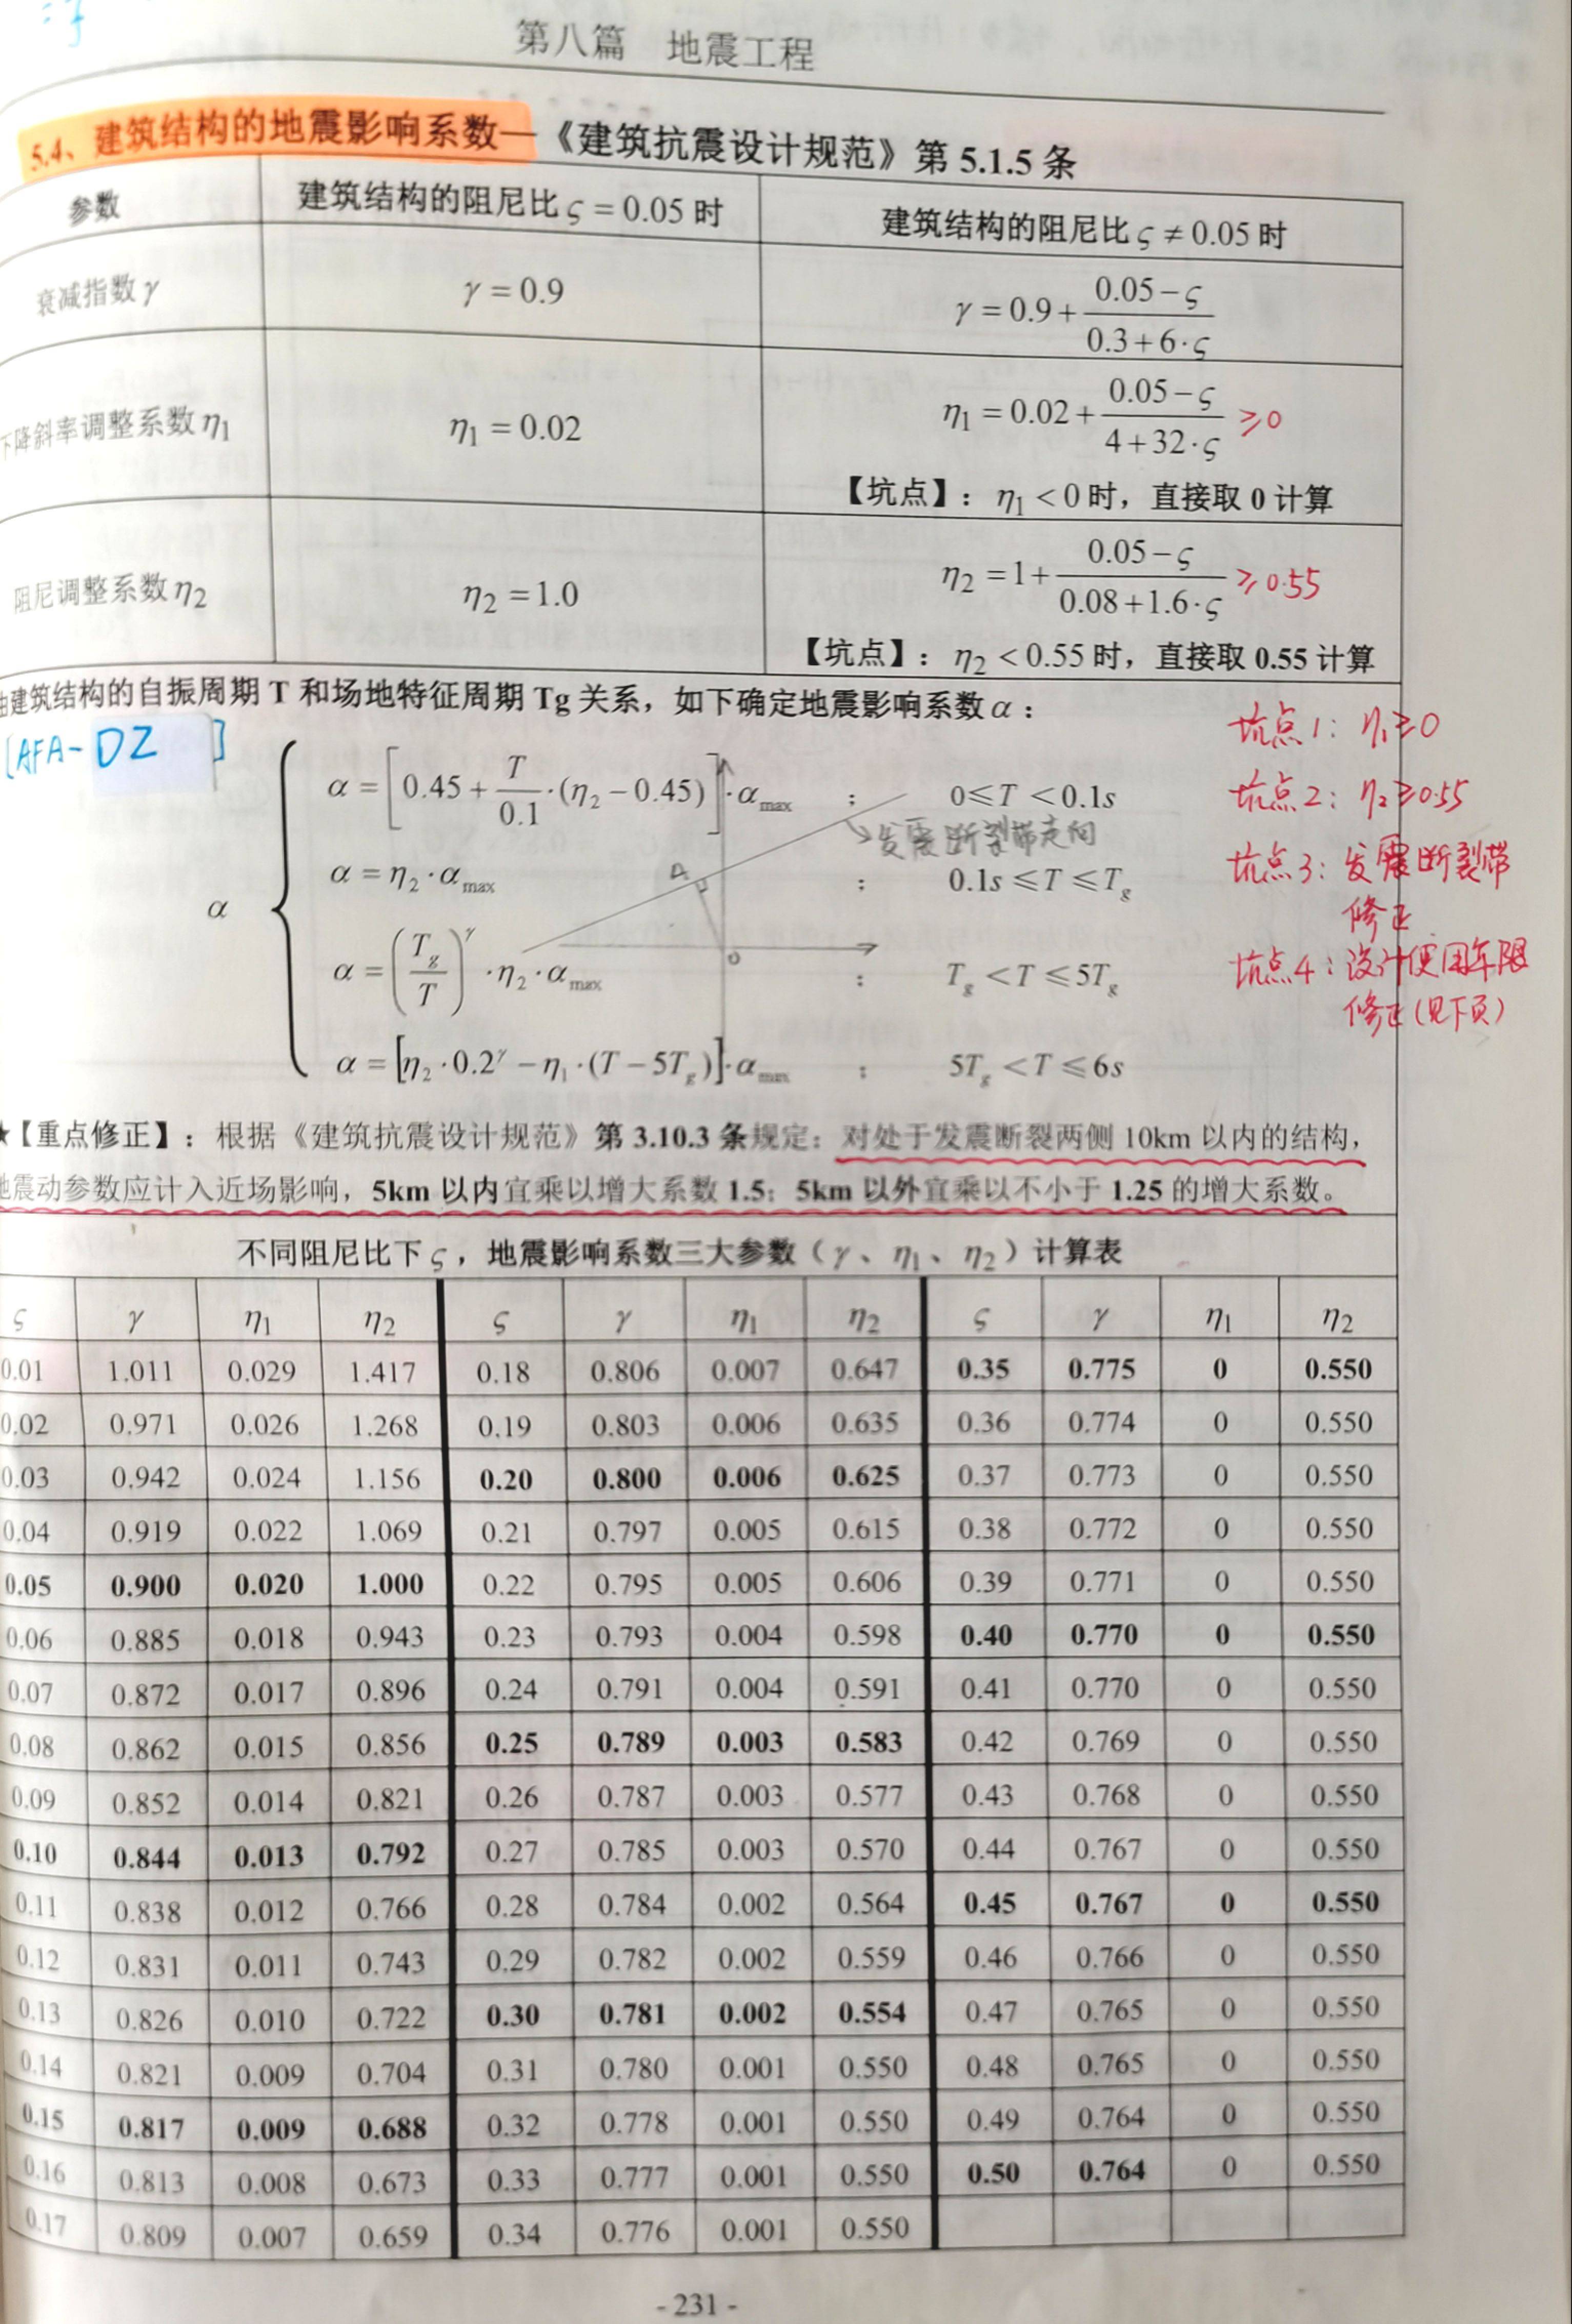 第八篇 地震工程
5.4、建筑结构的地震影响系数—《建筑抗震设计规范》第 5.1.5 条
参数 建筑结构的阻尼比 ς = 0.05 时 建筑结构的阻尼比 ς ≠ 0.05 时
衰减指数 γ γ = 0.9 γ = 0.9 + (0.05 − ς)/(0.3 + 6·ς)
下降斜率调整系数 η₁ η₁ = 0.02 η₁ = 0.02 + (0.05 − ς)/(4 + 32·ς) ≥0
【坑点】: η₁ < 0 时，直接取 0 计算
阻尼调整系数 η₂ η₂ = 1.0 η₂ = 1 + (0.05 − ς)/(0.08 + 1.6·ς) ≥0.55
【坑点】: η₂ < 0.55 时，直接取 0.55 计算
由建筑结构的自振周期 T 和场地特征周期 Tg 关系，如下确定地震影响系数 α：
[AFA-DZ]
α = [0.45 + T/0.1·(η₂ − 0.45)]·α_max ; 0≤T <0.1s
α = η₂·α_max ; 0.1s ≤T ≤T_g
α
α = (T_g/T)^γ·η₂·α_max ; T_g <T ≤5T_g
α = [η₂·0.2^γ − η₁·(T − 5T_g)]·α_max ; 5T_g <T ≤6s
发震断裂带走向
A
O
坑点1: η₁≥0
坑点2: η₂≥0.55
坑点3: 发震断裂带
修正
坑点4: 设计使用年限
修正(见下页)
★【重点修正】：根据《建筑抗震设计规范》第 3.10.3 条规定：对处于发震断裂两侧 10km 以内的结构，
地震动参数应计入近场影响，5km 以内宜乘以增大系数 1.5；5km 以外宜乘以不小于 1.25 的增大系数。
不同阻尼比下 ς，地震影响系数三大参数（γ、η₁、η₂）计算表
ς γ η₁ η₂ ς γ η₁ η₂ ς γ η₁ η₂
0.01 1.011 0.029 1.417 0.18 0.806 0.007 0.647 0.35 0.775 0 0.550
0.02 0.971 0.026 1.268 0.19 0.803 0.006 0.635 0.36 0.774 0 0.550
0.03 0.942 0.024 1.156 0.20 0.800 0.006 0.625 0.37 0.773 0 0.550
0.04 0.919 0.022 1.069 0.21 0.797 0.005 0.615 0.38 0.772 0 0.550
0.05 0.900 0.020 1.000 0.22 0.795 0.005 0.606 0.39 0.771 0 0.550
0.06 0.885 0.018 0.943 0.23 0.793 0.004 0.598 0.40 0.770 0 0.550
0.07 0.872 0.017 0.896 0.24 0.791 0.004 0.591 0.41 0.770 0 0.550
0.08 0.862 0.015 0.856 0.25 0.789 0.003 0.583 0.42 0.769 0 0.550
0.09 0.852 0.014 0.821 0.26 0.787 0.003 0.577 0.43 0.768 0 0.550
0.10 0.844 0.013 0.792 0.27 0.785 0.003 0.570 0.44 0.767 0 0.550
0.11 0.838 0.012 0.766 0.28 0.784 0.002 0.564 0.45 0.767 0 0.550
0.12 0.831 0.011 0.743 0.29 0.782 0.002 0.559 0.46 0.766 0 0.550
0.13 0.826 0.010 0.722 0.30 0.781 0.002 0.554 0.47 0.765 0 0.550
0.14 0.821 0.009 0.704 0.31 0.780 0.001 0.550 0.48 0.765 0 0.550
0.15 0.817 0.009 0.688 0.32 0.778 0.001 0.550 0.49 0.764 0 0.550
0.16 0.813 0.008 0.673 0.33 0.777 0.001 0.550 0.50 0.764 0 0.550
0.17 0.809 0.007 0.659 0.34 0.776 0.001 0.550
- 231 -